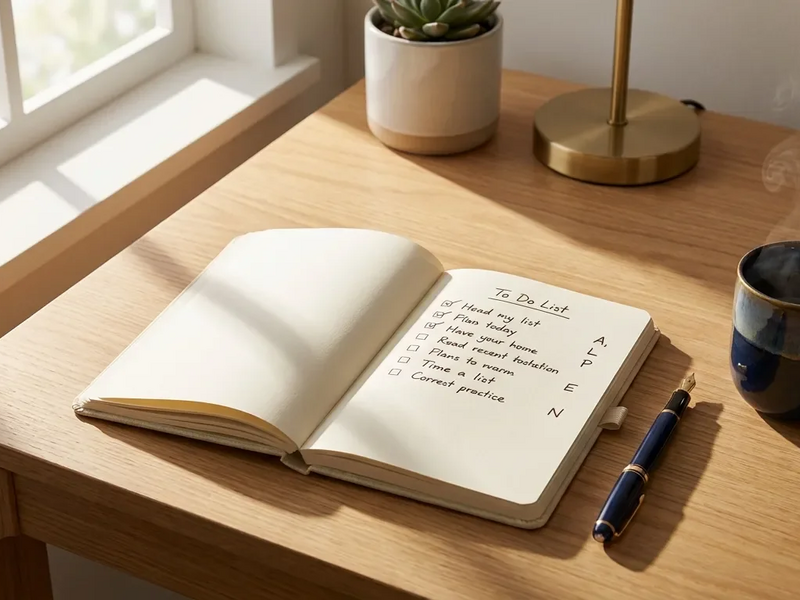 To Do List
Head my list
Plan today
Have your home
Read recent tostution
Plans to warm
Time a list
Correct practice
A,
L
P
E
N